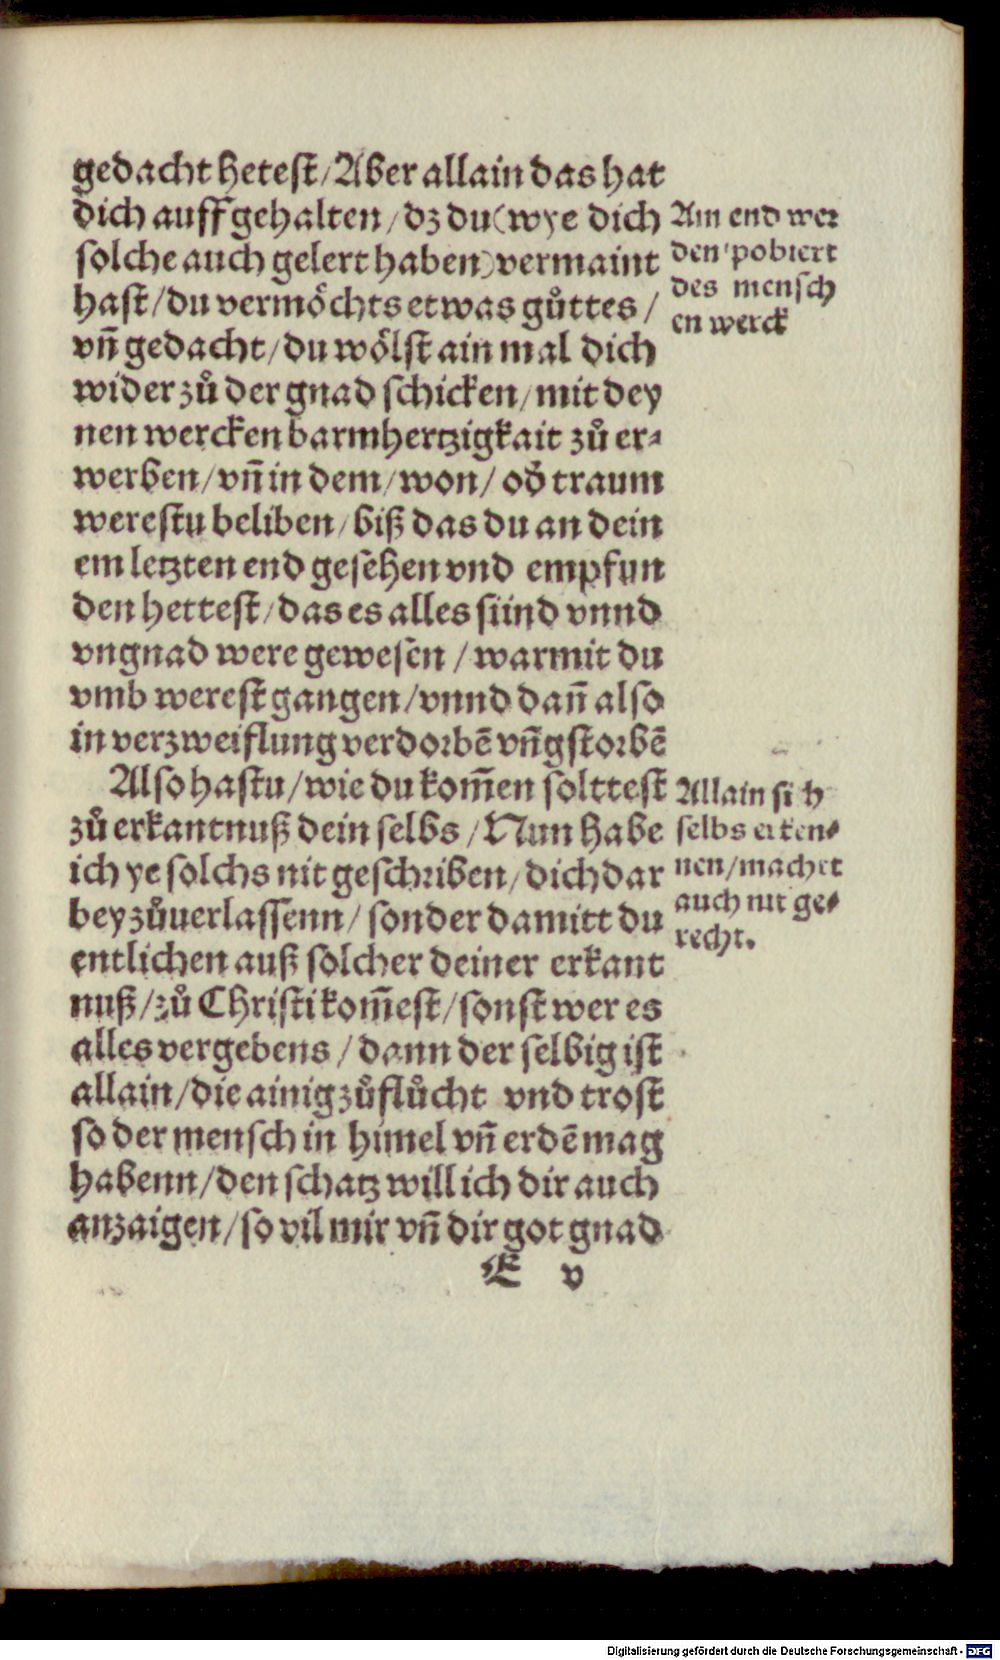 gedacht hetest/Aber allain das hat
dich auff gehalten/dz du(wye dich
solche auch gelert haben)vermaint
hast/du vermöchts etwas gůttes/
vn̄ gedacht/du wölst ain mal dich
wider zů der gnad schicken/mit dey
nen wercken barmhertzigkait zů er⸗
werben/vn̄ in dem/won/od̓ traum
werestu beliben/biß das du an dein
em letzten end gesehen vnd empfun
den hettest/das es alles sünd vnnd
vngnad were gewesen/warmit du
vmb werest gangen/vnnd dan̄ also
in verzweiflung verdorbē vn̄ gstorbē
Also hastu/wie du kom̄en solttest
zů erkantnuß dein selbs/Nun habe
ich ye solchs nit geschriben/dich dar
bey zůuerlassenn/sonder damitt du
entlichen auß solcher deiner erkant
nuß/zů Christi kom̄est/sonst wer es
alles vergebens/dann der selbig ist
allain/die ainig zůflůcht vnd trost
so der mensch in himel vn̄ erdē mag
habenn/den schatz will ich dir auch
anzaigen/so vil mir vn̄ dir got gnad
E v
Am end wer
den pobiert
des mensch
en werck
Allain sich
selbs erken⸗
nen/machet
auch nit ge⸗
recht.
Digitalisierung gefördert durch die Deutsche Forschungsgemeinschaft - DFG